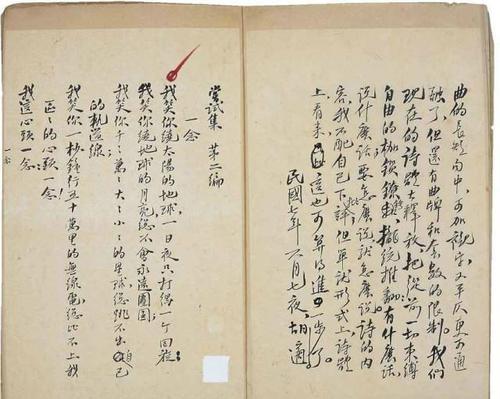 曲的長短句中,可加襯字,又平仄更可通
融了,但還有曲牌和套數的限制。我們
現在的詩體大釋放把從前一切束縛
自由的枷鎖鐐銬攏統推翻有什麼話
說什麼話要怎麼說就怎麼說詩的內
容我不配自己下評但單就形式上詩體
上看來 這也可算得進一步了。
民國七年六月七夜,胡適
嘗試集 第二編
一念
我笑你繞太陽的地球,一日夜只打得一个回旋;
我笑你繞地球的月兒,總不會永遠團圓;
我笑你千〻萬〻大〻小〻的星球,總跳不出自己
的軌道線;
我笑你一秒鐘行五十萬里的無線電,總比不上我
區〻的心頭一念!
我這心頭一念:
一念